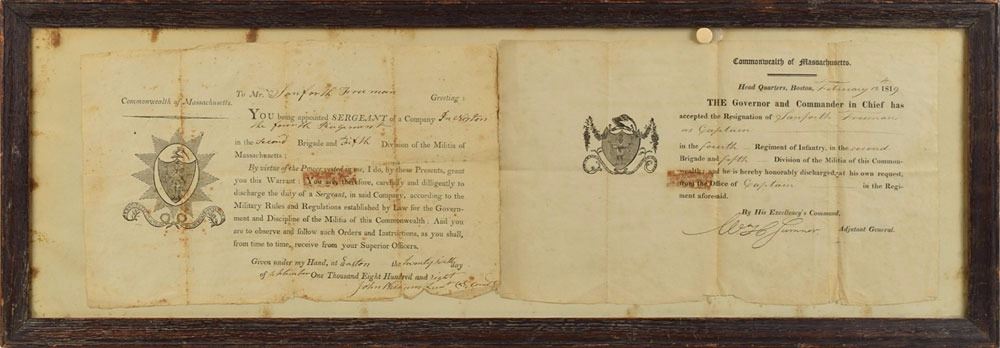 Commonwealth of Massachusetts.
To Mr. Sanforth Freeman Greeting:
YOU being appointed SERGEANT of a Company In Easton
the fourth Regiment
in the Second Brigade and Fifth Division of the Militia of
Massachusetts:
By virtue of the Power vested in me, I do, by these Presents, grant
you this Warrant: You are, therefore, carefully and diligently to
discharge the duty of a Sergeant, in said Company, according to the
Military Rules and Regulations established by Law for the Govern-
ment and Discipline of the Militia of this Commonwealth. And you
are to observe and follow such Orders and Instructions, as you shall,
from time to time, receive from your Superior Officers.
Given under my Hand, at Easton the twenty day
of September One Thousand Eight Hundred and eight
John
Commonwealth of Massachusetts.
Head Quarters, Boston, February 1819
THE Governor and Commander in Chief has
accepted the Resignation of Sanforth Freeman
as Captain
in the fourth Regiment of Infantry, in the second
Brigade and fifth Division of the Militia of this Common-
wealth; and he is hereby honorably discharged, at his own request,
from the Office of Captain in the Regi-
ment aforesaid.
By His Excellency's Command,
Wm H Sumner Adjutant General.